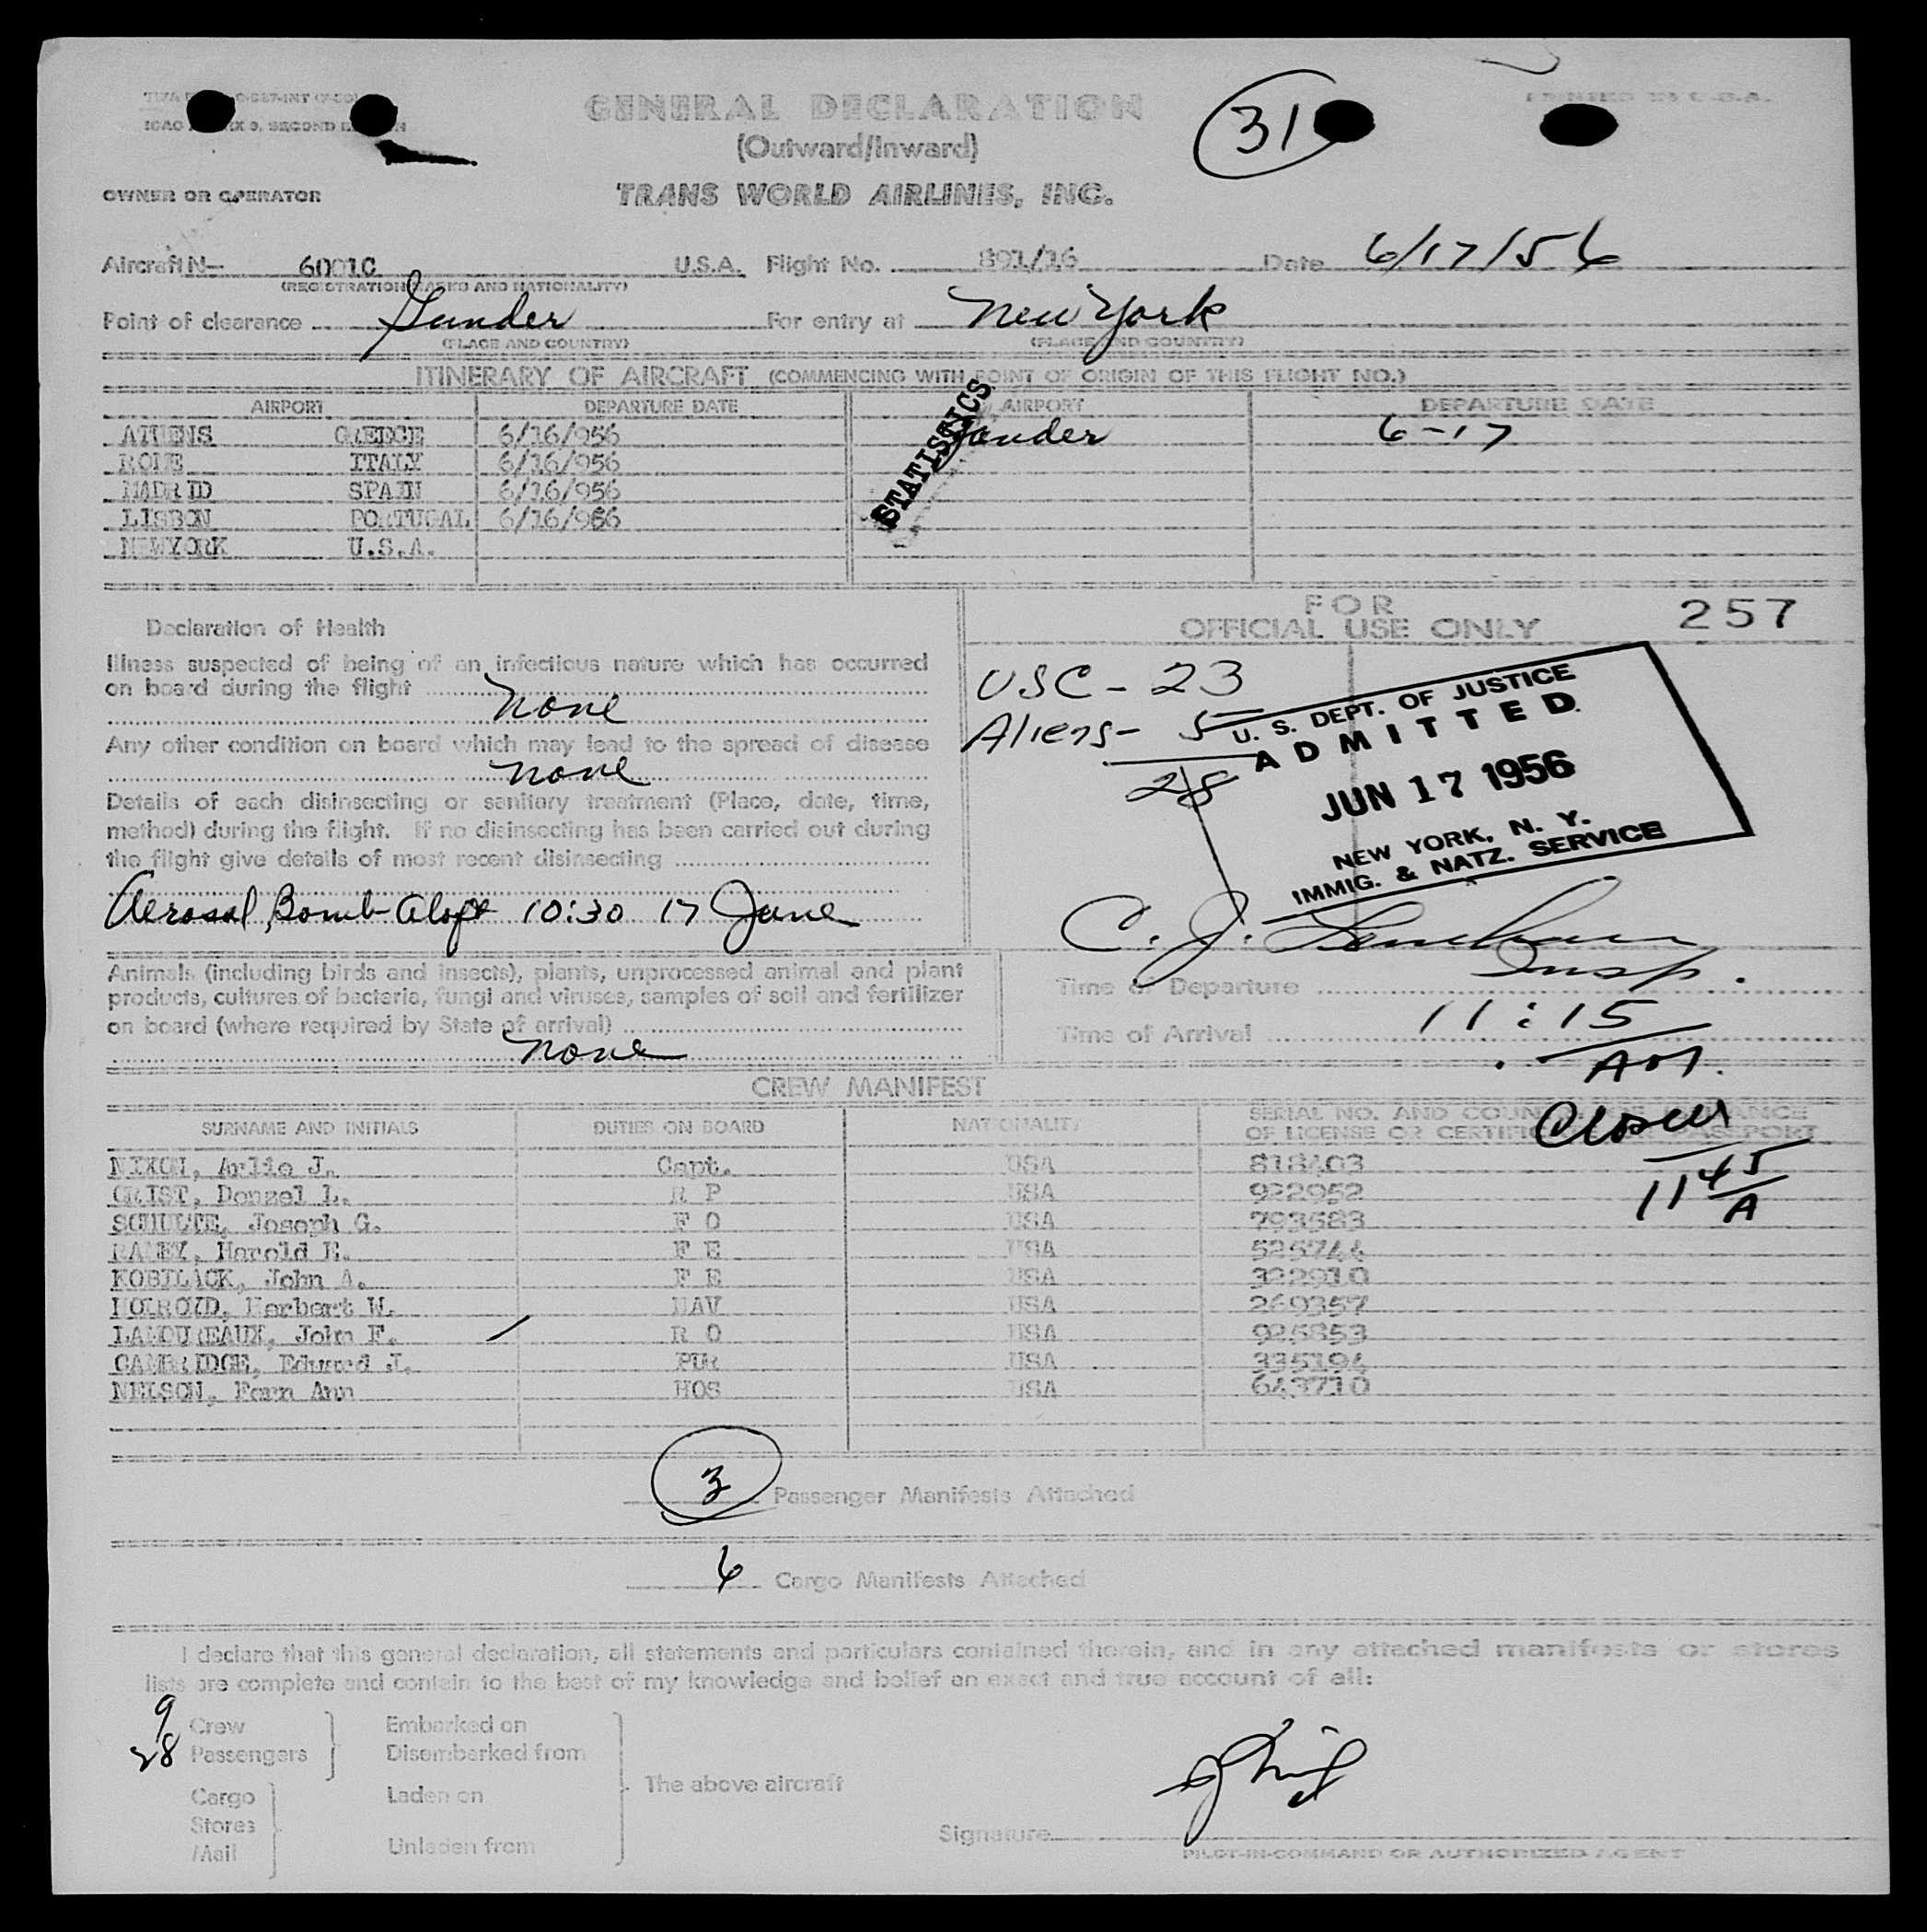 GENERAL DECLARATION
(Outward/Inward)
31
PRINTED IN U.S.A.
OWNER OR OPERATOR
TRANS WORLD AIRLINES, INC.
Aircraft N— 6001C U.S.A. Flight No. 891/16 Date 6/17/56
(REGISTRATION MARKS AND NATIONALITY)
Point of clearance Gander For entry at New York
(PLACE AND COUNTRY) (PLACE AND COUNTRY)
ITINERARY OF AIRCRAFT (COMMENCING WITH POINT OF ORIGIN OF THIS FLIGHT NO.)
AIRPORT DEPARTURE DATE AIRPORT DEPARTURE DATE
ATHENS GREECE 6/16/956 Gander 6-17
ROME ITALY 6/16/956
MADRID SPAIN 6/16/956
LISBON PORTUGAL 6/16/956
NEWYORK U.S.A.
STATISTICS
FOR
OFFICIAL USE ONLY
257
Declaration of Health
Illness suspected of being of an infectious nature which has occurred
on board during the flight
None
Any other condition on board which may lead to the spread of disease
None
Details of each disinsecting or sanitary treatment (Place, date, time,
method) during the flight. If no disinsecting has been carried out during
the flight give details of most recent disinsecting
Aerosol Bomb Aloft 10:30 17 June
USC - 23
Aliens - 5
28
U. S. DEPT. OF JUSTICE
ADMITTED
JUN 17 1956
NEW YORK, N. Y.
IMMIG. & NATZ. SERVICE
C. J.
Insp.
Animals (including birds and insects), plants, unprocessed animal and plant
products, cultures of bacteria, fungi and viruses, samples of soil and fertilizer
on board (where required by State of arrival)
None
Time of Departure
Time of Arrival 11:15
CREW MANIFEST
Closed
11 45 A
SURNAME AND INITIALS DUTIES ON BOARD NATIONALITY SERIAL NO. AND COUN ANCE
OF LICENSE OR CERTIFIC PASSPORT
NIXON, Arlie J. Capt. USA 818403
CRIST, Denzel L. R P USA 922952
SCHULTE, Joseph G. F O USA 793583
RAMEY, Harold E. F E USA 525744
KOBILACK, John A. F E USA 322910
HOLROYD, Herbert W. NAV USA 269357
LAMOUREAUX, John F. R O USA 925853
CAMBRIDGE, Edward J. PUR USA 335194
NELSON, Fern Ann HOS USA 643710
3 Passenger Manifests Attached
6 Cargo Manifests Attached
I declare that this general declaration, all statements and particulars contained therein, and in any attached manifests or stores
lists are complete and contain to the best of my knowledge and belief an exact and true account of all:
9 Crew
28 Passengers
Embarked on
Disembarked from
Cargo
Stores
Mail
Laden on
Unladen from
The above aircraft
Signature
PILOT-IN-COMMAND OR AUTHORIZED AGENT